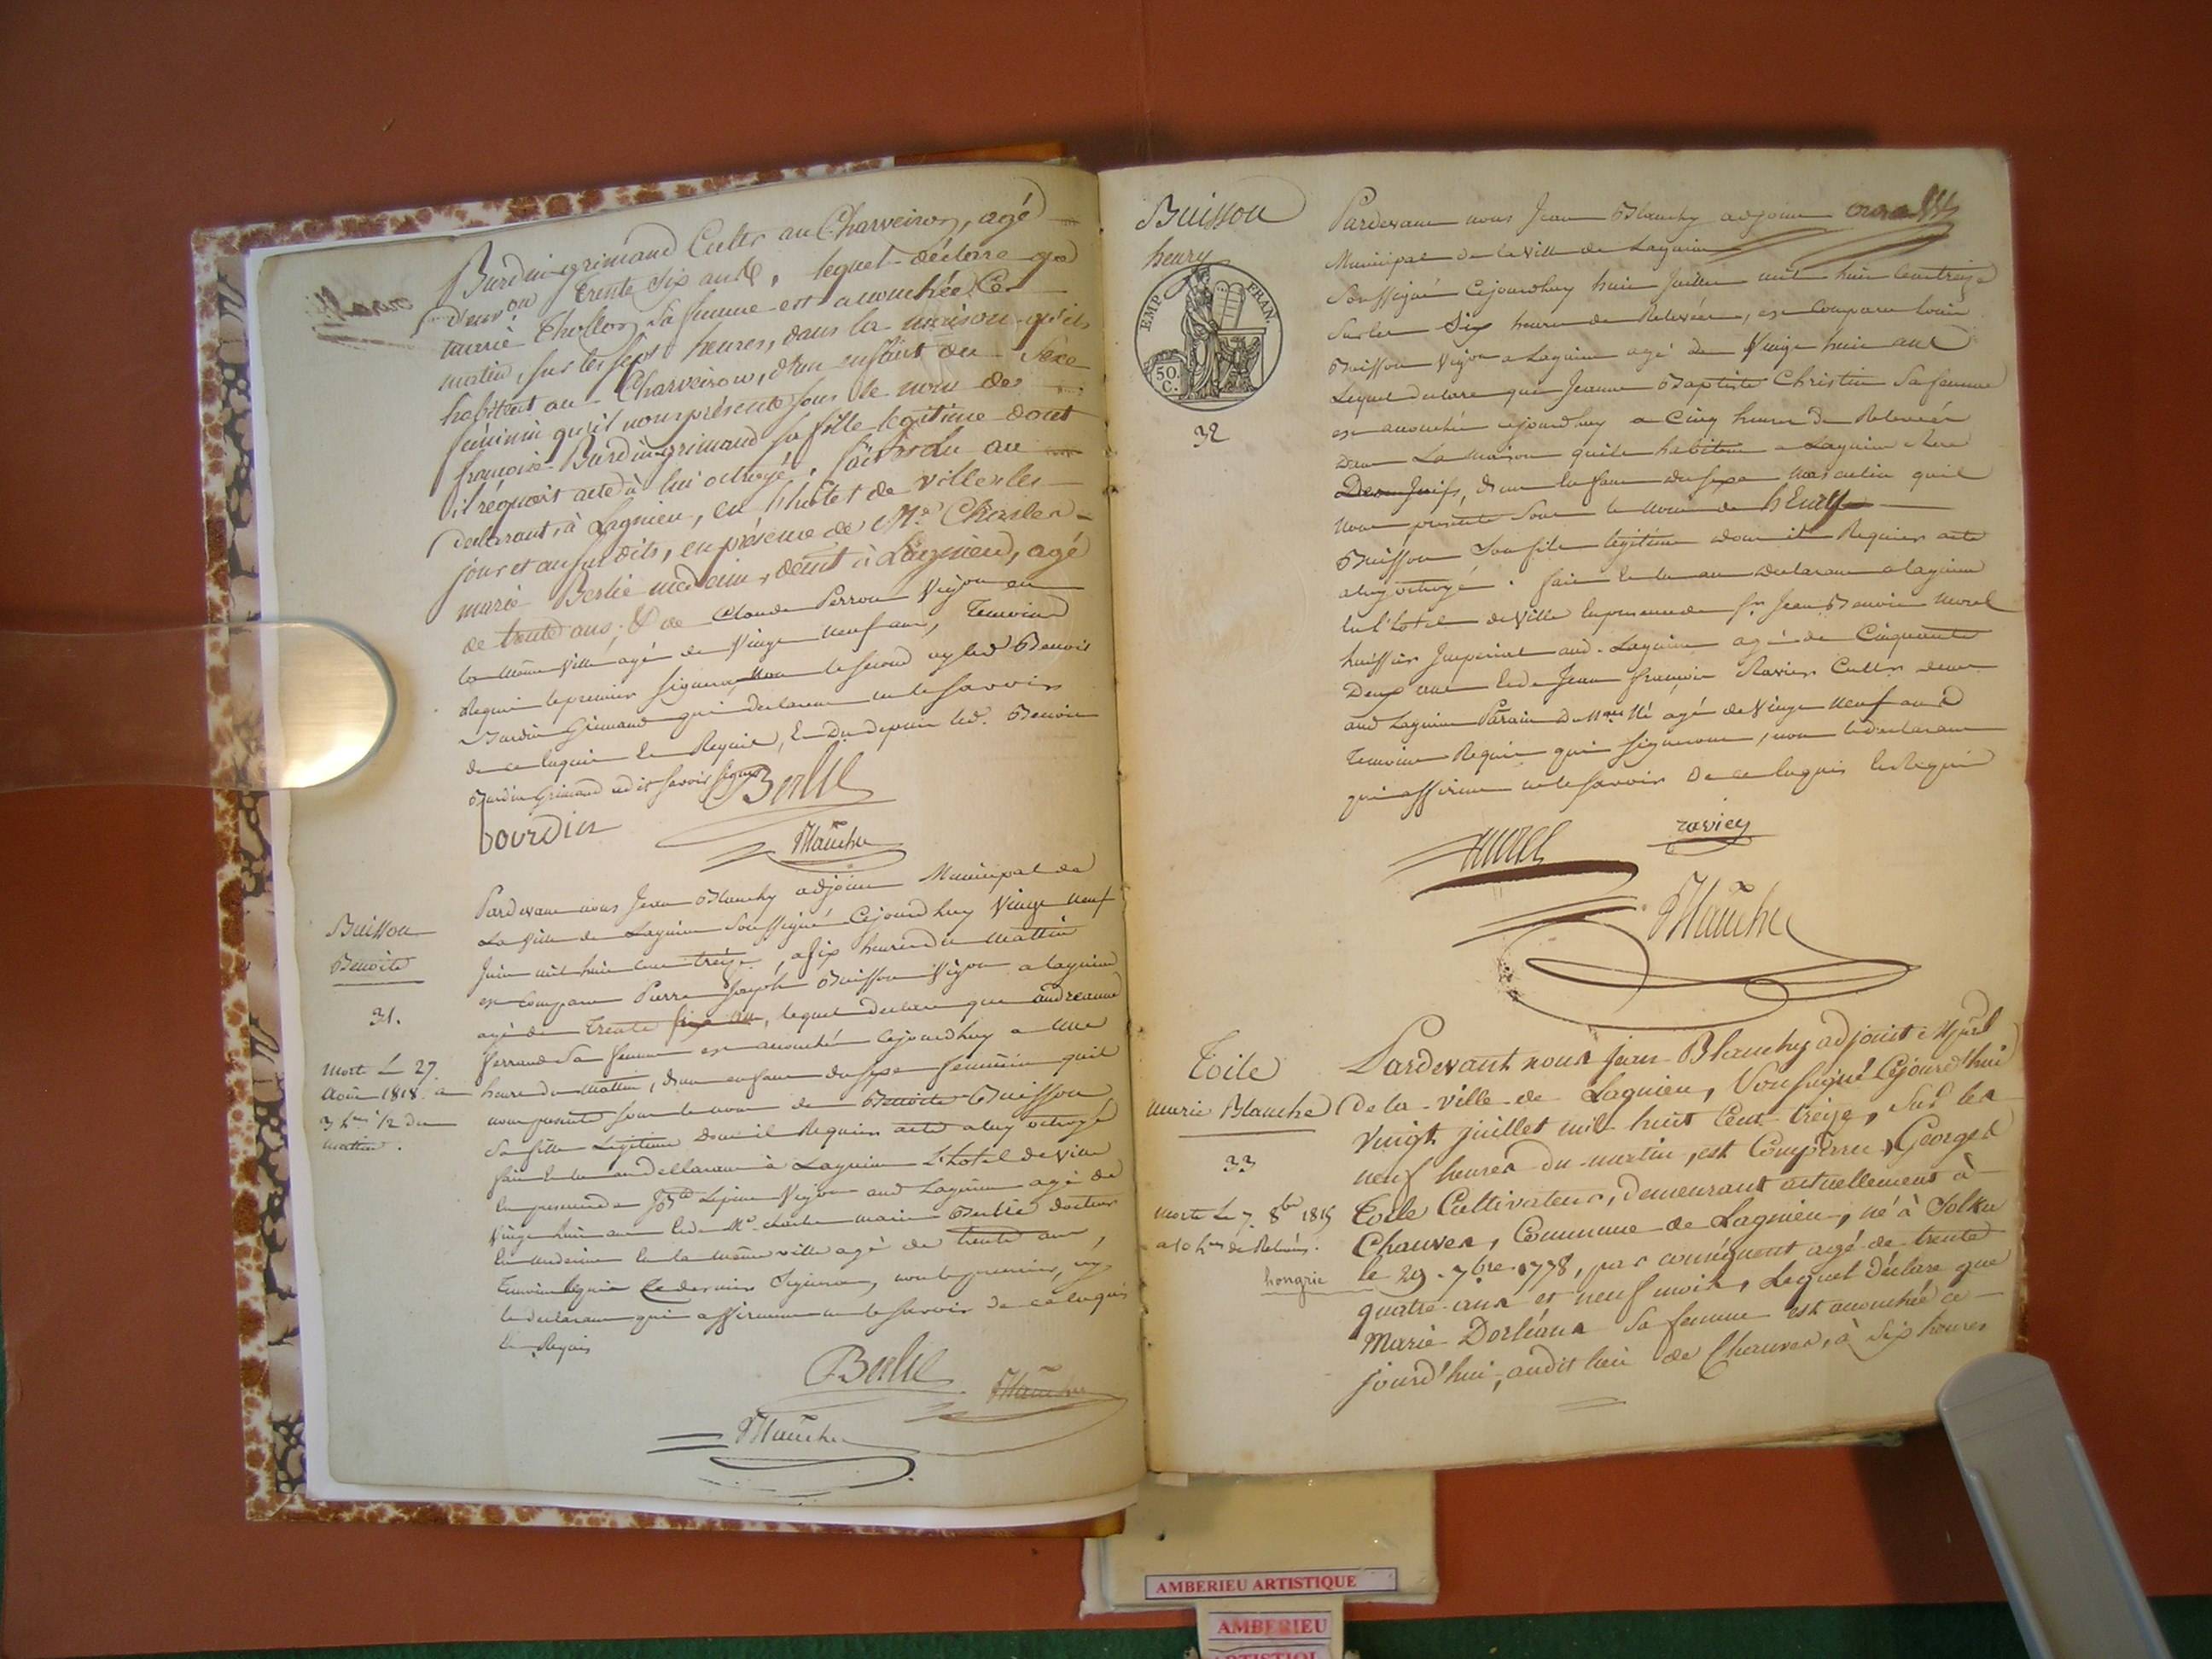 Burdin grimand Cultr au Charveiron, agé
d'env.on trente six ans, lequel déclare que
marie Thollon sa femme est accouchée Ce
matin, sur les sept heures, dans la maison qu'ils
habittent au Charveiron, d'un enfant du Sexe
féminin qu'il nous présente sous le nom de
françoise Burdin grimand sa fille légitime dont
il réquert acte à lui octroyé. fait et lu au
déclarant, à Lagnieu, en l'hôtel de ville les
jour et an susdits, en présence de Mr. Charles
marie Berlié médecin, demt à Lagnieu, agé
de trente ans, & de Claude Perron Vigon en
la même Ville agé de Vingt neuf ans, Temoins
Requis le premier signera, non le second ny led Benoit
Burdin Grimand qui declarent ne le savoir
de ce Enquis et Requis, Et Du depuis led. Benoit
Burdin Grimand a dit savoir signer
Berlié
bourdin
Blanchy
Buisson
Benoite
31.
Mort Le 27
Aout 1818 a
3 hes 1/2 du
mattin.
Pardevant nous Jean Blanchy adjoint Municipal de
La Ville de Lagnieu Soussigné Cejourdhuy Vingt neuf
Juin mil huit cent treize, a six heures du Mattin
est comparu Pierre Joseph Buisson Vigon a Lagnieu
agé de Trente six ans, lequel declare que andreanne
ferrand Sa femme est accouchée cejourdhuy a une
heure du Mattin, d'un enfant du sexe feminin quil
nous presente sous le nom de Benoite Buisson
Sa fille Légitime Dont il Requiert acte a luy octroyé
fait et lu au declarant à Lagnieu L'hotel de Ville
En presence de Jph Lépine Vigon aud Lagnieu agé de
Vingt huit ans et de Mr. charles marie Berlié docteur
En medecine En la même ville agé de trente ans,
Temoins Requis Ce dernier Signera, non le premier, ny
le declarant qui affirment ne le savoir de ce Enquis
Et Requis
Berlié
Blanchy
Blanchy
Buisson
henry
EMP. FRAN.
50. C.
32
Pardevant nous Jean Blanchy adjoint
Municipal de la Ville de Lagnieu
Soussigné Cejourdhuy huit Juillet mil huit Cent treize
Sur les Six heures de Relevée, est comparu Louis
Buisson Vigon a Lagnieu agé de Vingt huit ans
Lequel declare que Jeanne Baptiste Christin Sa femme
est accouchée cejourdhuy a Cinq heures de Relevée
Dans La maison quils habitent a Lagnieu Rue
Des Juifs, d'un Enfant du sexe masculin quil
nous presente Sous le nom de hEnry
Buisson Son fils légitime dont il Requiert acte
a luy octroyé. fait Et lu au Declarant a lagnieu
En l'hotel de Ville En presence de Sr Jean Benoit Morel
huissier Imperial aud. Lagnieu agé de Cinquante
Deux ans Et de Jean françois Ravier Cultr demt
aud Lagnieu Parain Du Nau Né agé de Vingt Neuf ans
Temoins Requis qui Signeront, non le declarant
qui affirme ne le savoir de ce Enquis Et Requis
Morel
ravier
Blanchy
Toile
Marie Blanche
33
Morte Le 7. 8bre 1815
a 10 hes de Relevée.
hongrie
Pardevant nous jean Blanchy adjoint Mpal
De la ville de Lagnieu, Soussigné Cejourd'hui
Vingt juillet mil huit Cent treize, Sur les
neuf heures du matin, est Comparu Georges
Toile Cultivateur, demeurant actuellement à
Chauves, Commune de Lagnieu, né à Tolka
le 29. 7bre 1778, par conséquent agé de trente
quatre ans et neuf mois, Lequel Déclare que
Marie Dorléans Sa femme est accouchée ce
jourd'hui, audit lieu de Chauves, à Six heures
AMBERIEU ARTISTIQUE
AMBERIEU